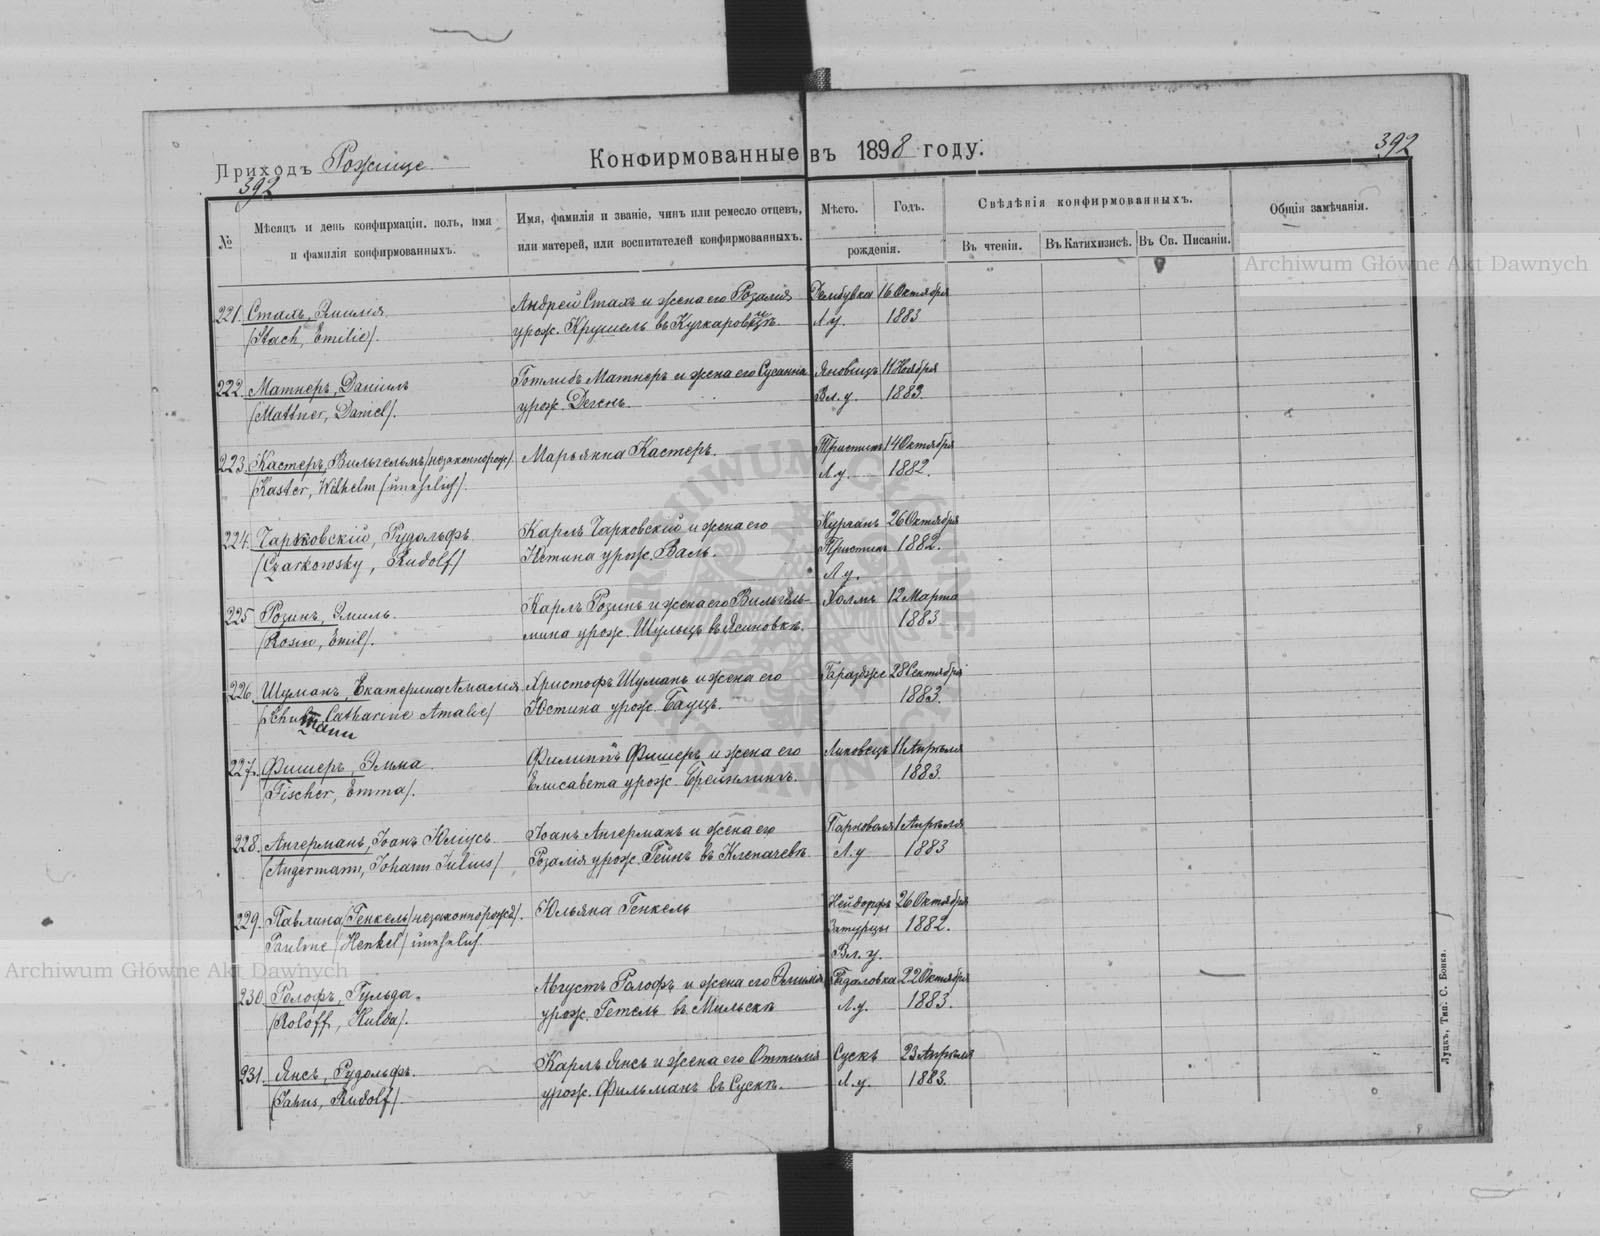 Приходъ Рожище.
Конфирмованные въ 1898 году.
392
392
№
Мѣсяцъ и день конфирмаціи, полъ, имя
и фамилія конфирмованныхъ.
Имя, фамилія и званіе, чинъ или ремесло отцевъ,
или матерей, или воспитателей конфирмованныхъ.
Мѣсто.
Годъ.
рожденія.
Свѣдѣнія конфирмованныхъ.
Въ чтеніи.
Въ Катихизисѣ.
Въ Св. Писаніи.
Общія замѣчанія.
221. Стахъ, Эмилія
/Stach, Emilie/.
Андрей Стахъ и жена его Розалія
урож. Крушель въ
Дембувка 16 Октября
Л.у. 1883
222. Матнеръ, Даніилъ
/Mattner, Daniel/.
Готлибъ Матнеръ и жена его Сусанна
урож. Дегенъ.
Яновецъ 11 Ноября
Вл. у. 1883.
223. Кастеръ, Вильгельмъ /незаконнорож/.
/Kaster, Wilhelm /unehelich/.
Марьянна Кастеръ.
Тристенъ 14 Октября
Л.у. 1882.
224. Чарковскій, Рудольфъ
/Czarkowsky, Rudolf/
Карлъ Чарковскій и жена его
Юстина урож. Валь.
Курганъ 26 Октября
Тристенъ 1882.
Л.у.
225 Розинъ, Эмиль.
/Rosin, Emil/.
Карлъ Розинъ и жена его Вильгель-
мина урож. Шульцъ въ Ясиновкѣ.
Холмъ 12 Марта
1883
226. Шуманъ, Екатерина Амалія
/Schumann Catharine Amalie/
Христофъ Шуманъ и жена его
Юстина урож. Бауцъ.
Гараздже 28 Сентября
1883.
227. Фишеръ, Эмма
/Fischer, Emma/.
Филиппъ Фишеръ и жена его
Елисавета урож.
Липовецъ 11 Апрѣля
1883.
228. Ангерманъ, Іоанъ Юліусъ
/Angermann, Johann Julius/
Іоанъ Ангерманъ и жена его
Розалія урож. Гейнъ въ Клепачевѣ.
1 Апрѣля
Л.у 1883
229. Павлина /Генкель/ незаконнорожд/.
Pauline /Henkel/ unehelich
Юльяна Генкель
Нейдорфъ 26 Октября
Затурцы 1882.
Вл. у.
230. Ролофъ, Гульда.
/Roloff, Hulda/.
Августъ Ролофъ и жена его Эмилія
урож. Гетель въ Мыльскѣ
22 Октября
Л.у. 1883.
231. Янсъ, Рудольфъ.
/Jahns, Rudolf/.
Карлъ Янсъ и жена его Оттилія
урож. Фильманъ въ Сускѣ.
Сускъ 23 Апрѣля
Л.у. 1883.
Луцкъ, Тип. С. Бонка.
Archiwum Główne Akt Dawnych
Archiwum Główne Akt Dawnych
ARCHIWUM GŁÓWNE AKT DAWNYCH